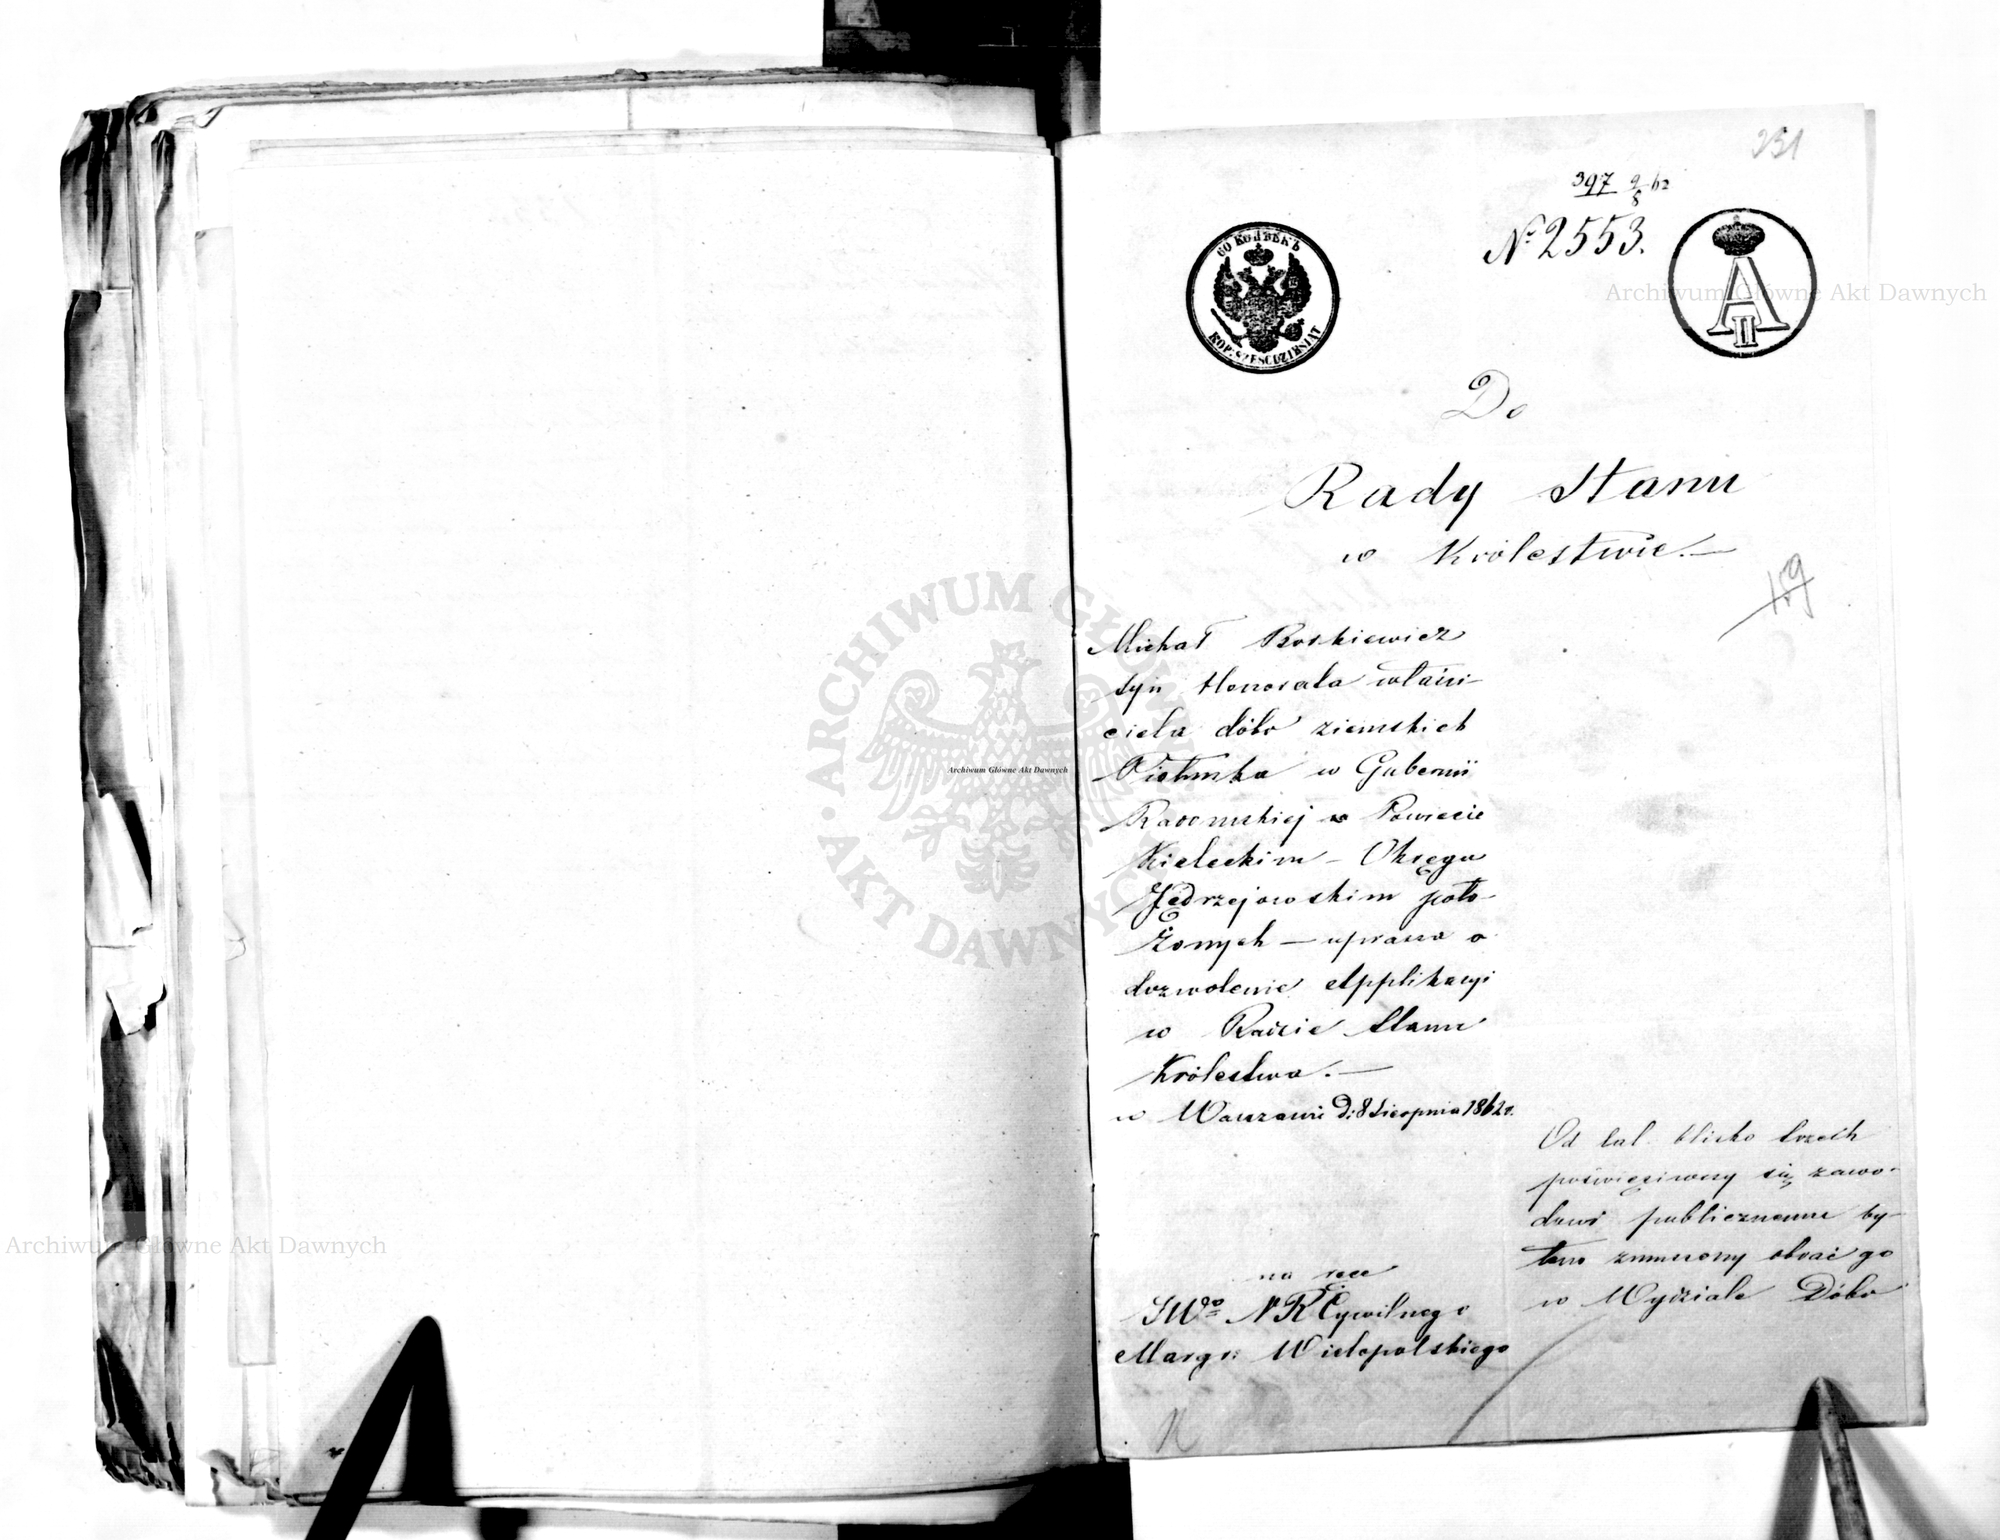 231
397 9/8 62
№ 2553.
60 КОПѢЕКЪ
KOP. SZEŚĆDZIESIĄT
A II
Do
Rady Stanu
w Królestwie. —
159
Michał Roskiewicz
syn Honorata właści-
ciela dóbr ziemskich
w Gubernii
Radomskiej w Powiecie
Kieleckim – Okręgu
Jędrzejowskim poło-
żonych — uprasza o
dozwolenie Applikacyi
w Radzie Stanu
Królestwa. —
w Warszawie D: 8 Sierpnia 1862 r.
Od lat blisko trzech
poświęciwszy się zawo-
dowi publicznemu by-
łem zmuszony obrać go
w Wydziale Dóbr
na ręce
JWo N R Cywilnego
Margr: Wielopolskiego
ARCHIWUM GŁÓWNE AKT DAWNYCH
Archiwum Główne Akt Dawnych
Archiwum Główne Akt Dawnych
Archiwum Główne Akt Dawnych